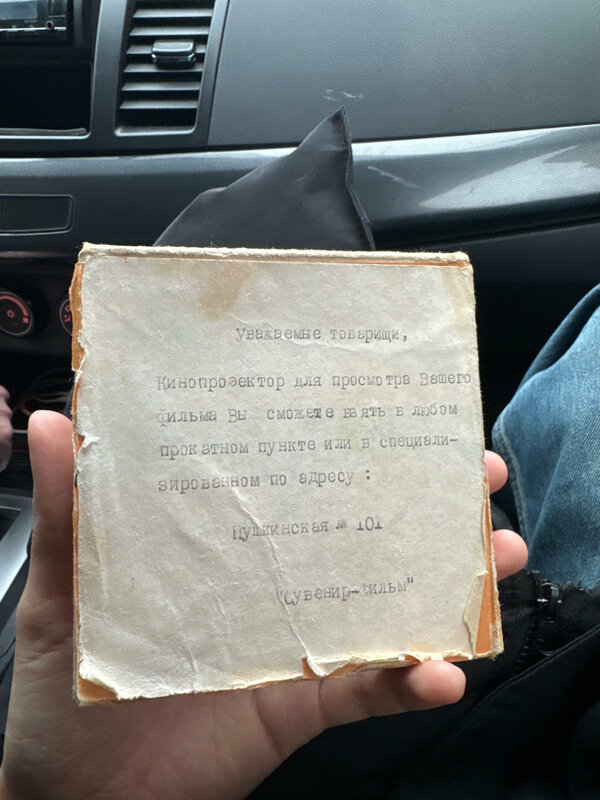 Уважаемые товарищи,
Кинопроэктор для просмотра Вашего
фильма Вы сможете взять в любом
прокатном пункте или в специали-
зированном по адресу :
Пушкинская № 101
"Сувенир-фильм"